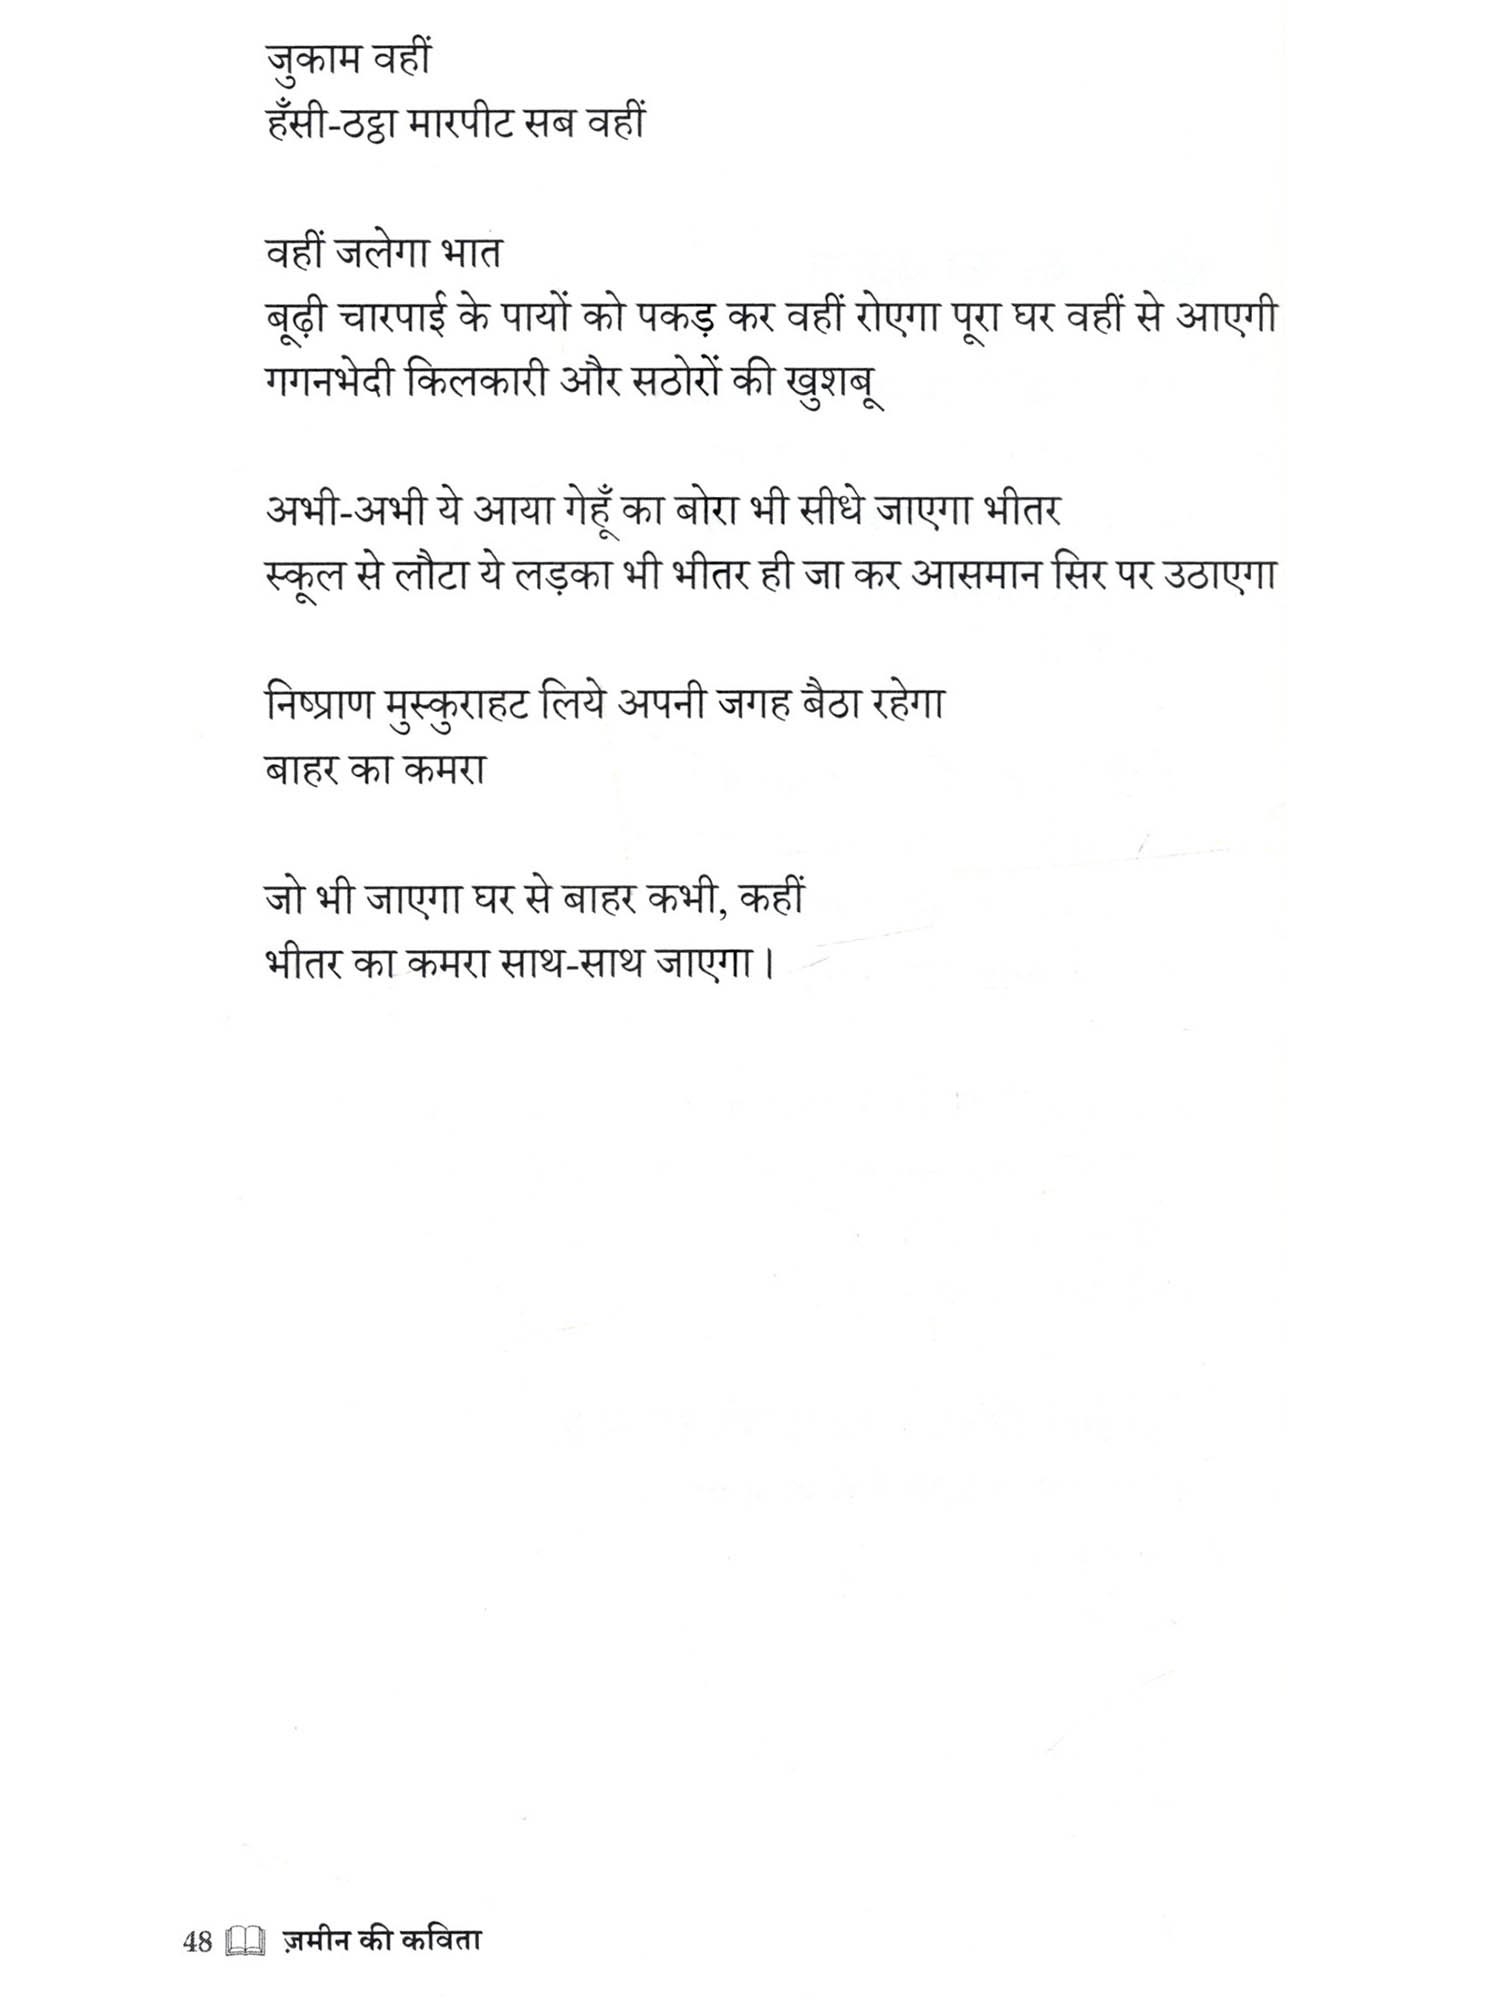 जुकाम वहीं
हँसी-ठट्ठा मारपीट सब वहीं
वहीं जलेगा भात
बूढ़ी चारपाई के पायों को पकड़ कर वहीं रोएगा पूरा घर वहीं से आएगी
गगनभेदी किलकारी और सठोरों की खुशबू
अभी-अभी ये आया गेहूँ का बोरा भी सीधे जाएगा भीतर
स्कूल से लौटा ये लड़का भी भीतर ही जा कर आसमान सिर पर उठाएगा
निष्प्राण मुस्कुराहट लिये अपनी जगह बैठा रहेगा
बाहर का कमरा
जो भी जाएगा घर से बाहर कभी, कहीं
भीतर का कमरा साथ-साथ जाएगा।
48 ज़मीन की कविता